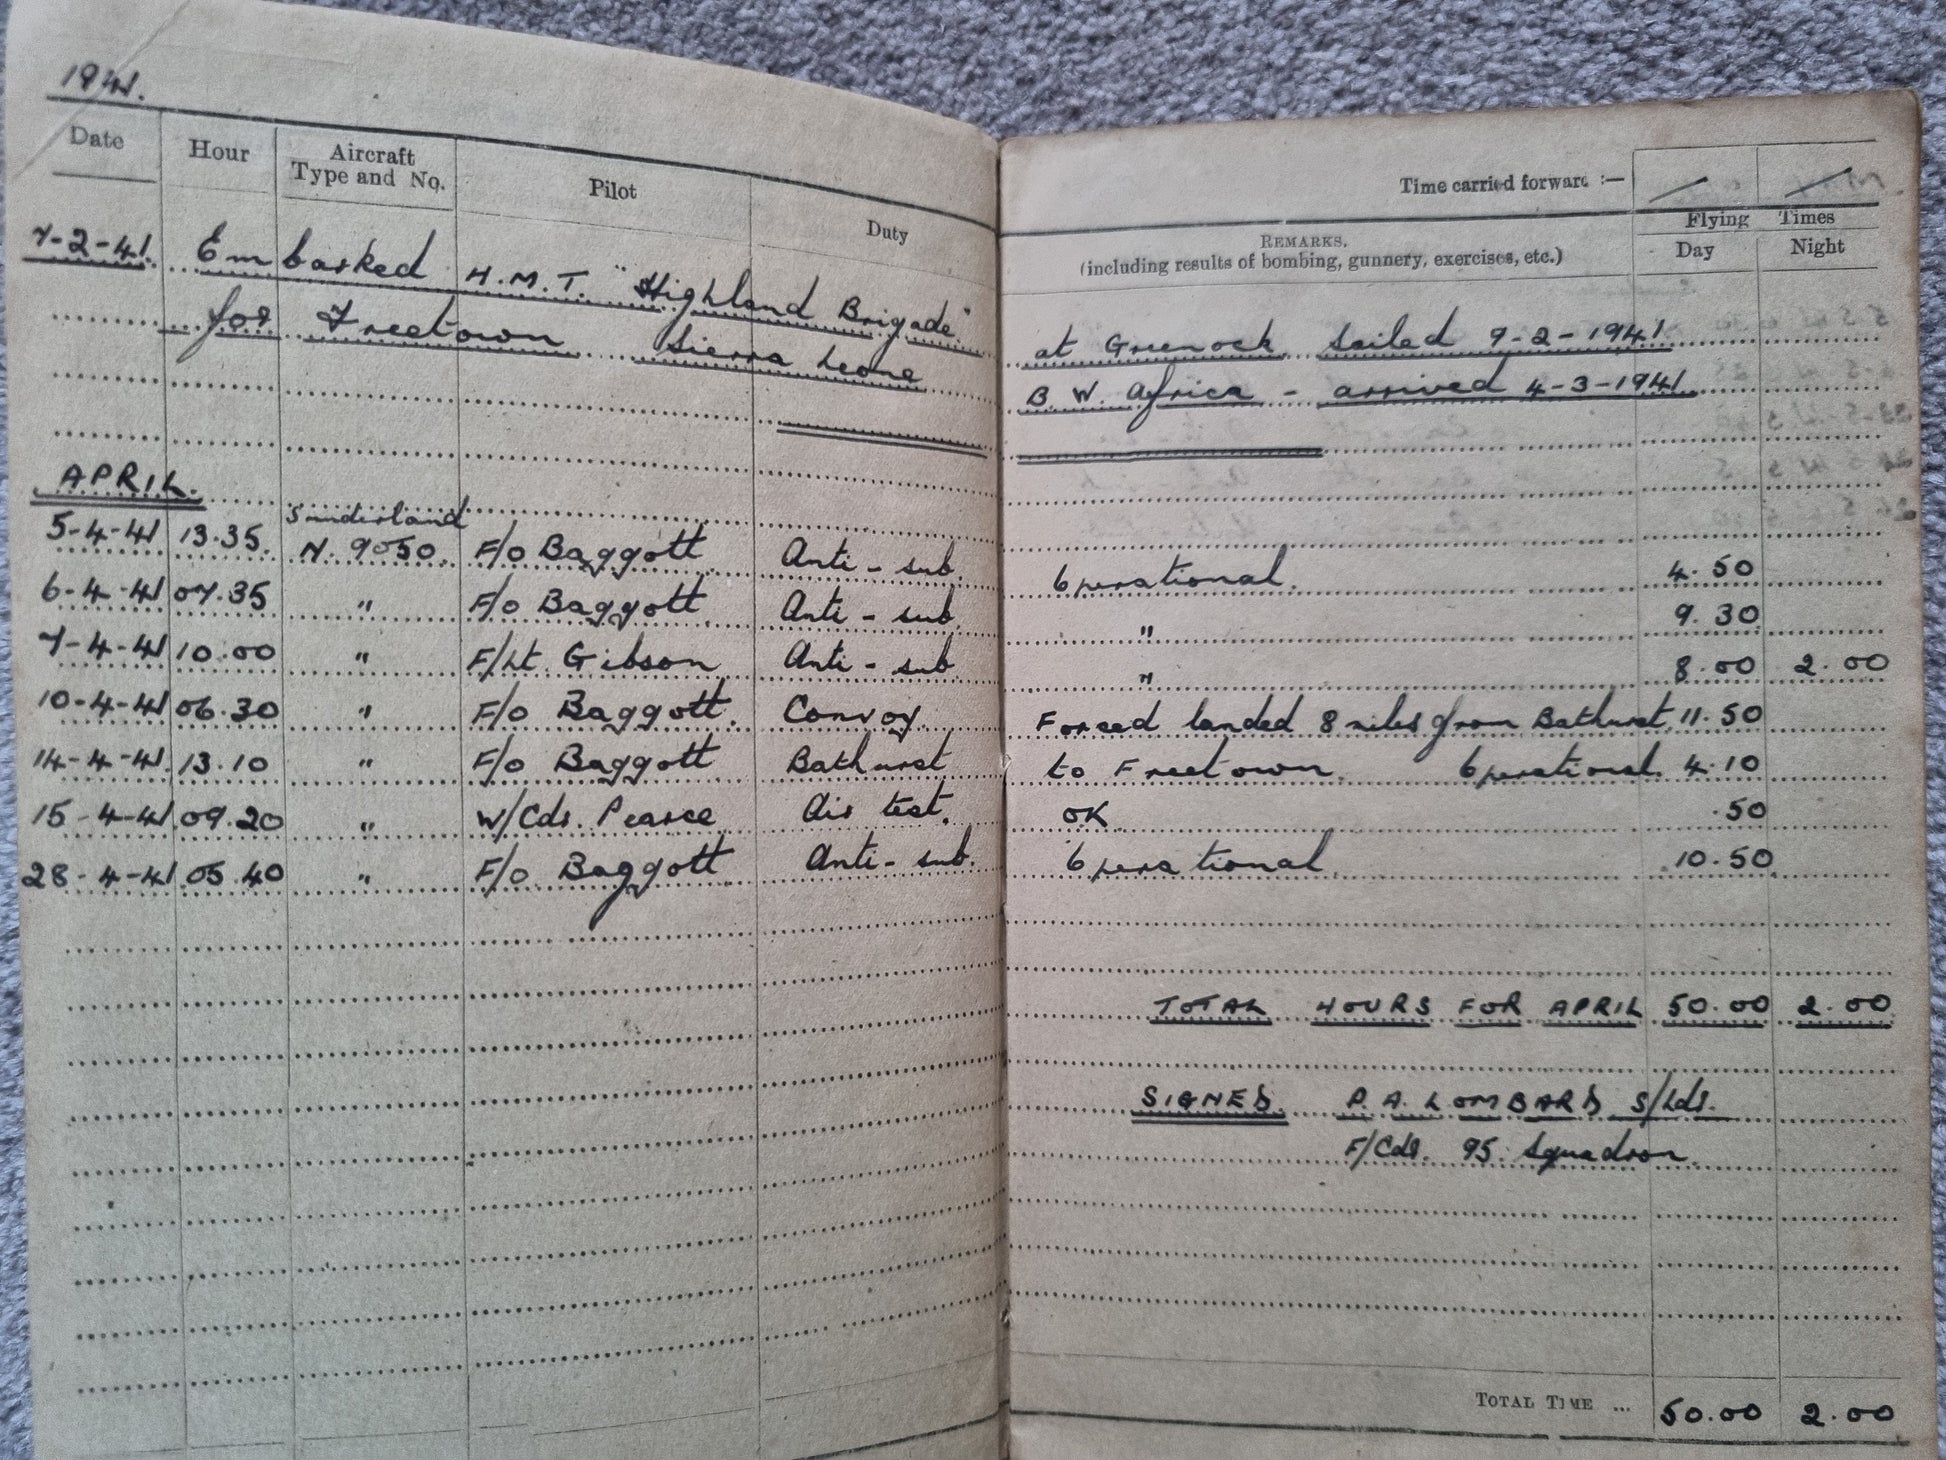 1941.
Date Hour Aircraft Type and No. Pilot Duty
Time carried forward :—
REMARKS. (including results of bombing, gunnery, exercises, etc.) Flying Times Day Night
7-2-41. Embarked H.M.T. "Highland Brigade" at Greenock sailed 9-2-1941
for Freetown Sierra Leone B. W. Africa - arrived 4-3-1941.
APRIL.
Sunderland
5-4-41 13.35. N. 9050. F/o Baggott Anti-sub. Operational. 4.50
6-4-41 07.35 " F/o Baggott Anti-sub. " 9.30
7-4-41 10.00 " F/Lt. Gibson Anti-sub " 8.00 2.00
10-4-41 06.30 " F/o Baggott. Convoy. Forced landed 8 miles from Bathurst. 11.50
14-4-41 13.10 " F/o Baggott Bathurst to Freetown. Operational. 4.10
15-4-41 09.20 " W/Cdr. Pearce Air test. OK .50
28-4-41 05.40 " F/o Baggott Anti-sub. Operational 10.50
TOTAL HOURS FOR APRIL 50.00 2.00
SIGNED. P. A. LOMBARD S/Ldr.
F/Cdr. 95 Squadron.
TOTAL TIME ... 50.00 2.00